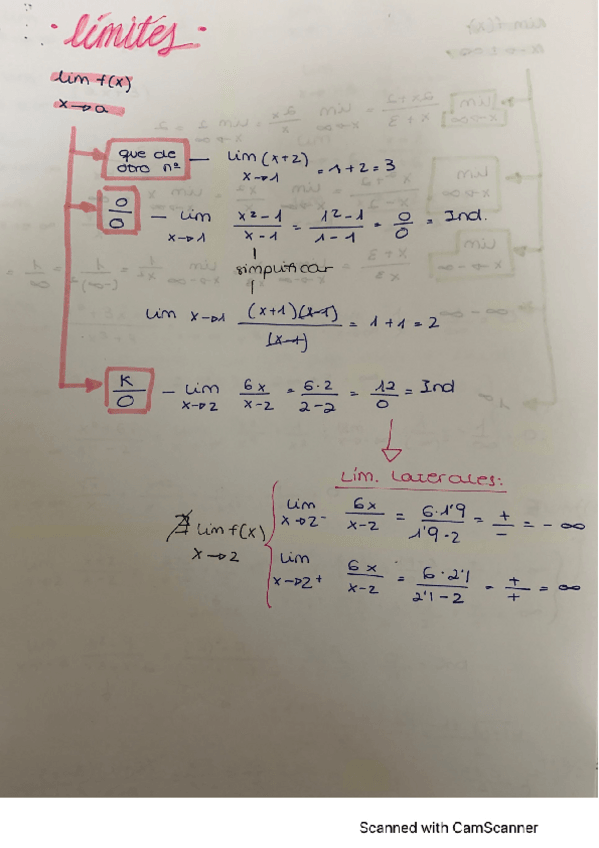 · límites ·
lim f(x)
x→a
que de otro nº — lim (x+2) = 1+2 = 3
x→1
0/0 — lim x²-1/x-1 = 1²-1/1-1 = 0/0 = Ind.
x→1
simplificar
lim x→1 (x+1)(x-1)/(x-1) = 1+1 = 2
K/0 — lim 6x/x-2 = 6·2/2-2 = 12/0 = Ind
x→2
Lím. Laterales:
lim 6x/x-2 = 6·1'9/1'9-2 = +/- = -∞
x→2-
∄ lim f(x)
x→2
lim 6x/x-2 = 6·2'1/2'1-2 = +/+ = ∞
x→2+
Scanned with CamScanner